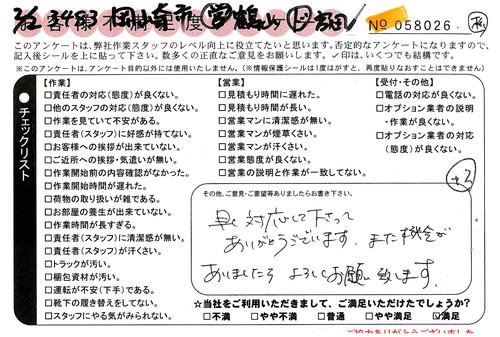 3/2 3483 岡崎市 営 鶴山
お客様不満足度
No 058026
このアンケートは、弊社作業スタッフのレベル向上に役立てたいと思います。否定的なアンケートになりますので、
記入後シールを上に貼って下さい。数多くの正直なご意見をお願いします。✓印は、いくつでも結構です。
※このアンケートは、アンケート目的以外には使用いたしません。(※情報保護シールは1度はがすと、再度貼りなおすことはできません)
チェックリスト
【作業】
□責任者の対応(態度)が良くない。
□他のスタッフの対応(態度)が良くない。
□作業を見ていて不安がある。
□責任者(スタッフ)に好感が持てない。
□お客様への挨拶が出来ていない。
□ご近所への挨拶・気遣いが無い。
□作業開始前の内容確認がなかった。
□作業開始時間が遅れた。
□荷物の取り扱いが雑である。
□お部屋の養生が出来ていない。
□作業時間が長すぎる。
□責任者(スタッフ)に清潔感が無い。
□責任者(スタッフ)が汗くさい。
□トラックが汚い。
□梱包資材が汚い。
□運転が不安(下手)である。
□靴下の履き替えをしてない。
□スタッフにやる気がみられない。
【営業】
□見積もり時間に遅れた。
□見積もり時間が長い。
□営業マンに清潔感が無い。
□営業マンが煙草くさい。
□営業マンが汗くさい。
□営業態度が良くない。
□営業の説明と作業が一致してない。
【受付・その他】
□電話の対応が良くない。
□オプション業者の説明
・作業が良くない。
□オプション業者の対応
(態度)が良くない。
その他、ご意見・ご要望等ありましたらお書き下さい。
早い対応して下さって
ありがとうございます。また機会が
ありましたら よろしくお願い致します。
☆当社をご利用いただきまして、ご満足いただけたでしょうか?
□不満 □やや不満 □普通 □やや満足 ☑満足
ご協力ありがとうございました